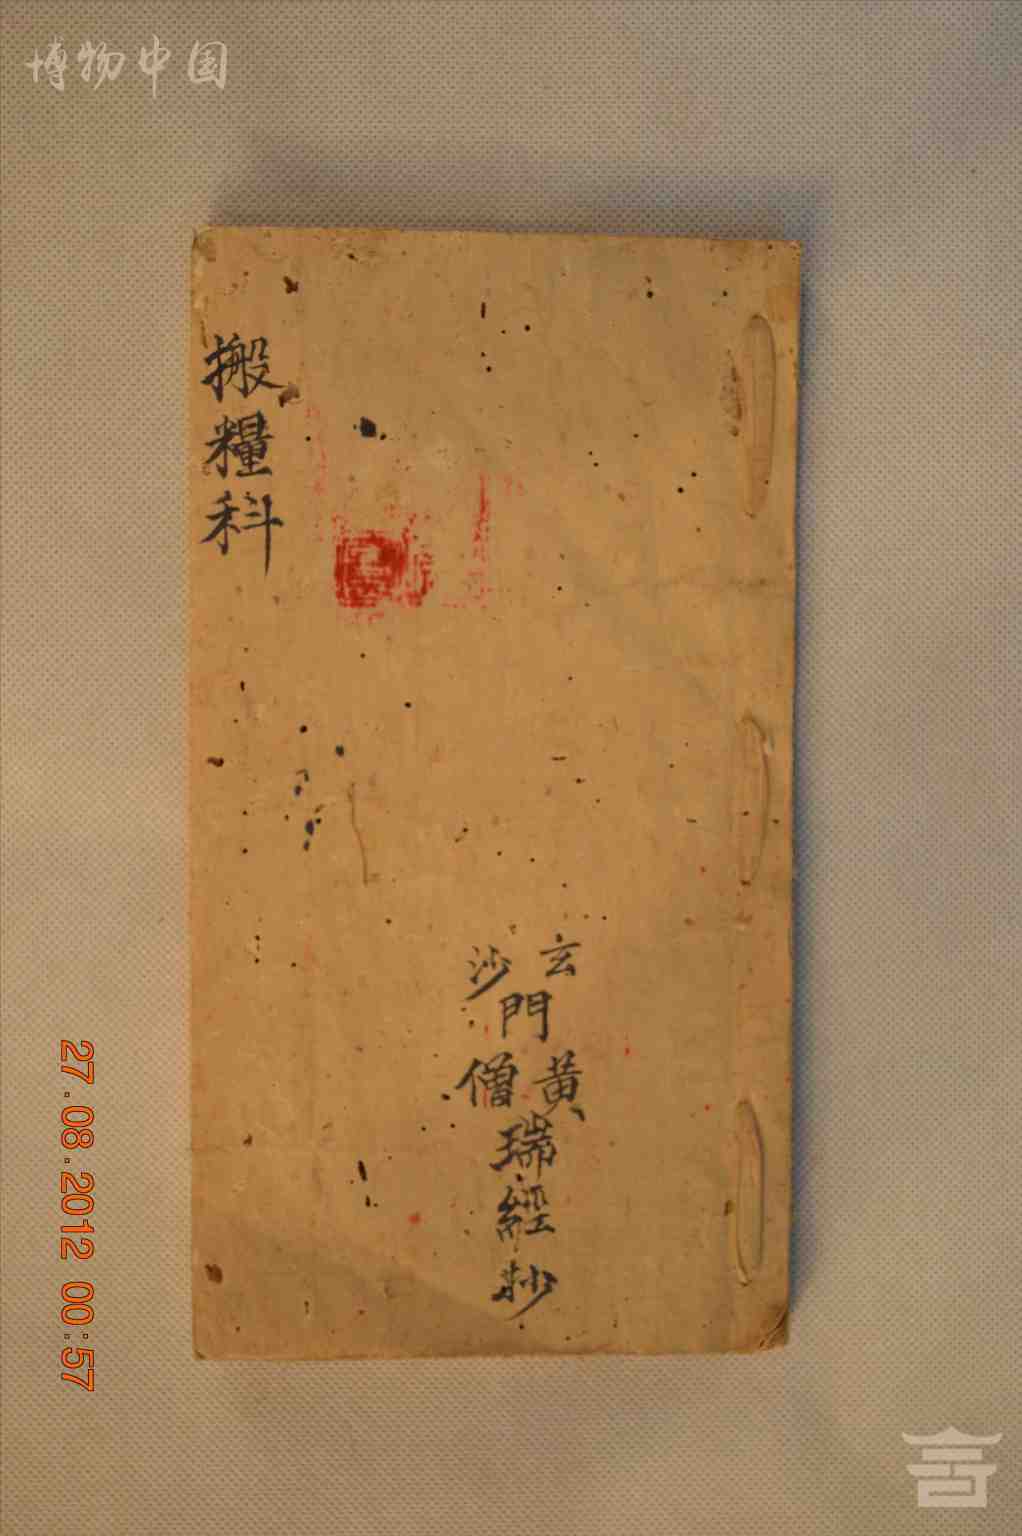 博物中国
搬糧科
玄 沙
門
黃 僧
瑞經抄
27.08.2012 00:57